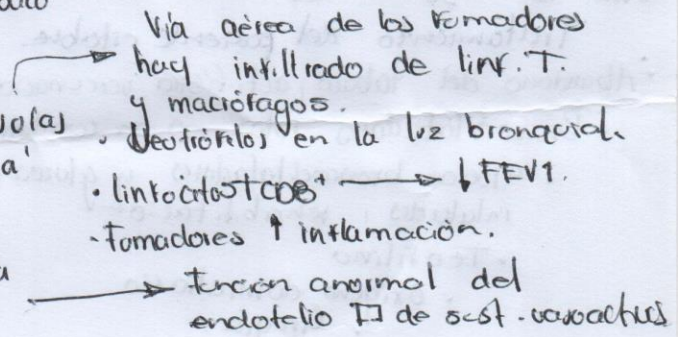 Vía aérea de los fumadores
hay infiltrado de linf. T.
y macrófagos.
· Neutrófilos en la luz bronquial.
· linfocitos TCD8⁺ → ↓ FEV1.
· Fumadores ↑ inflamación.
→ Función anormal del
endotelio [] de sust. vasoactivas